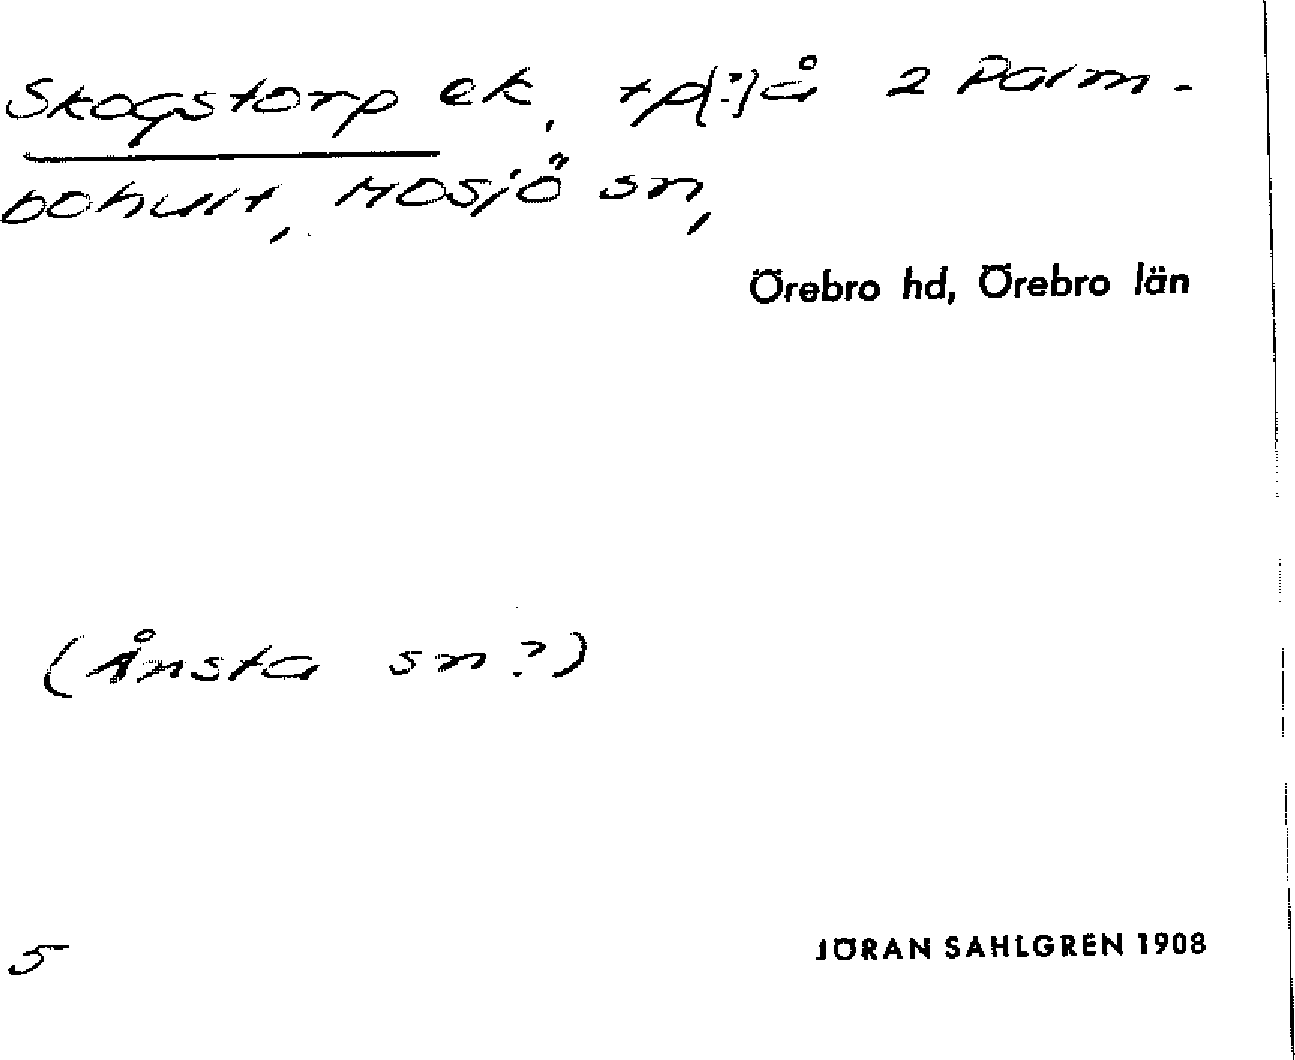 Skogstorp ek, tp(?)å 2 Palm-
bohult, Mosjö sn,
Örebro hd, Örebro län
(Ånsta sn?)
5
JÖRAN SAHLGREN 1908